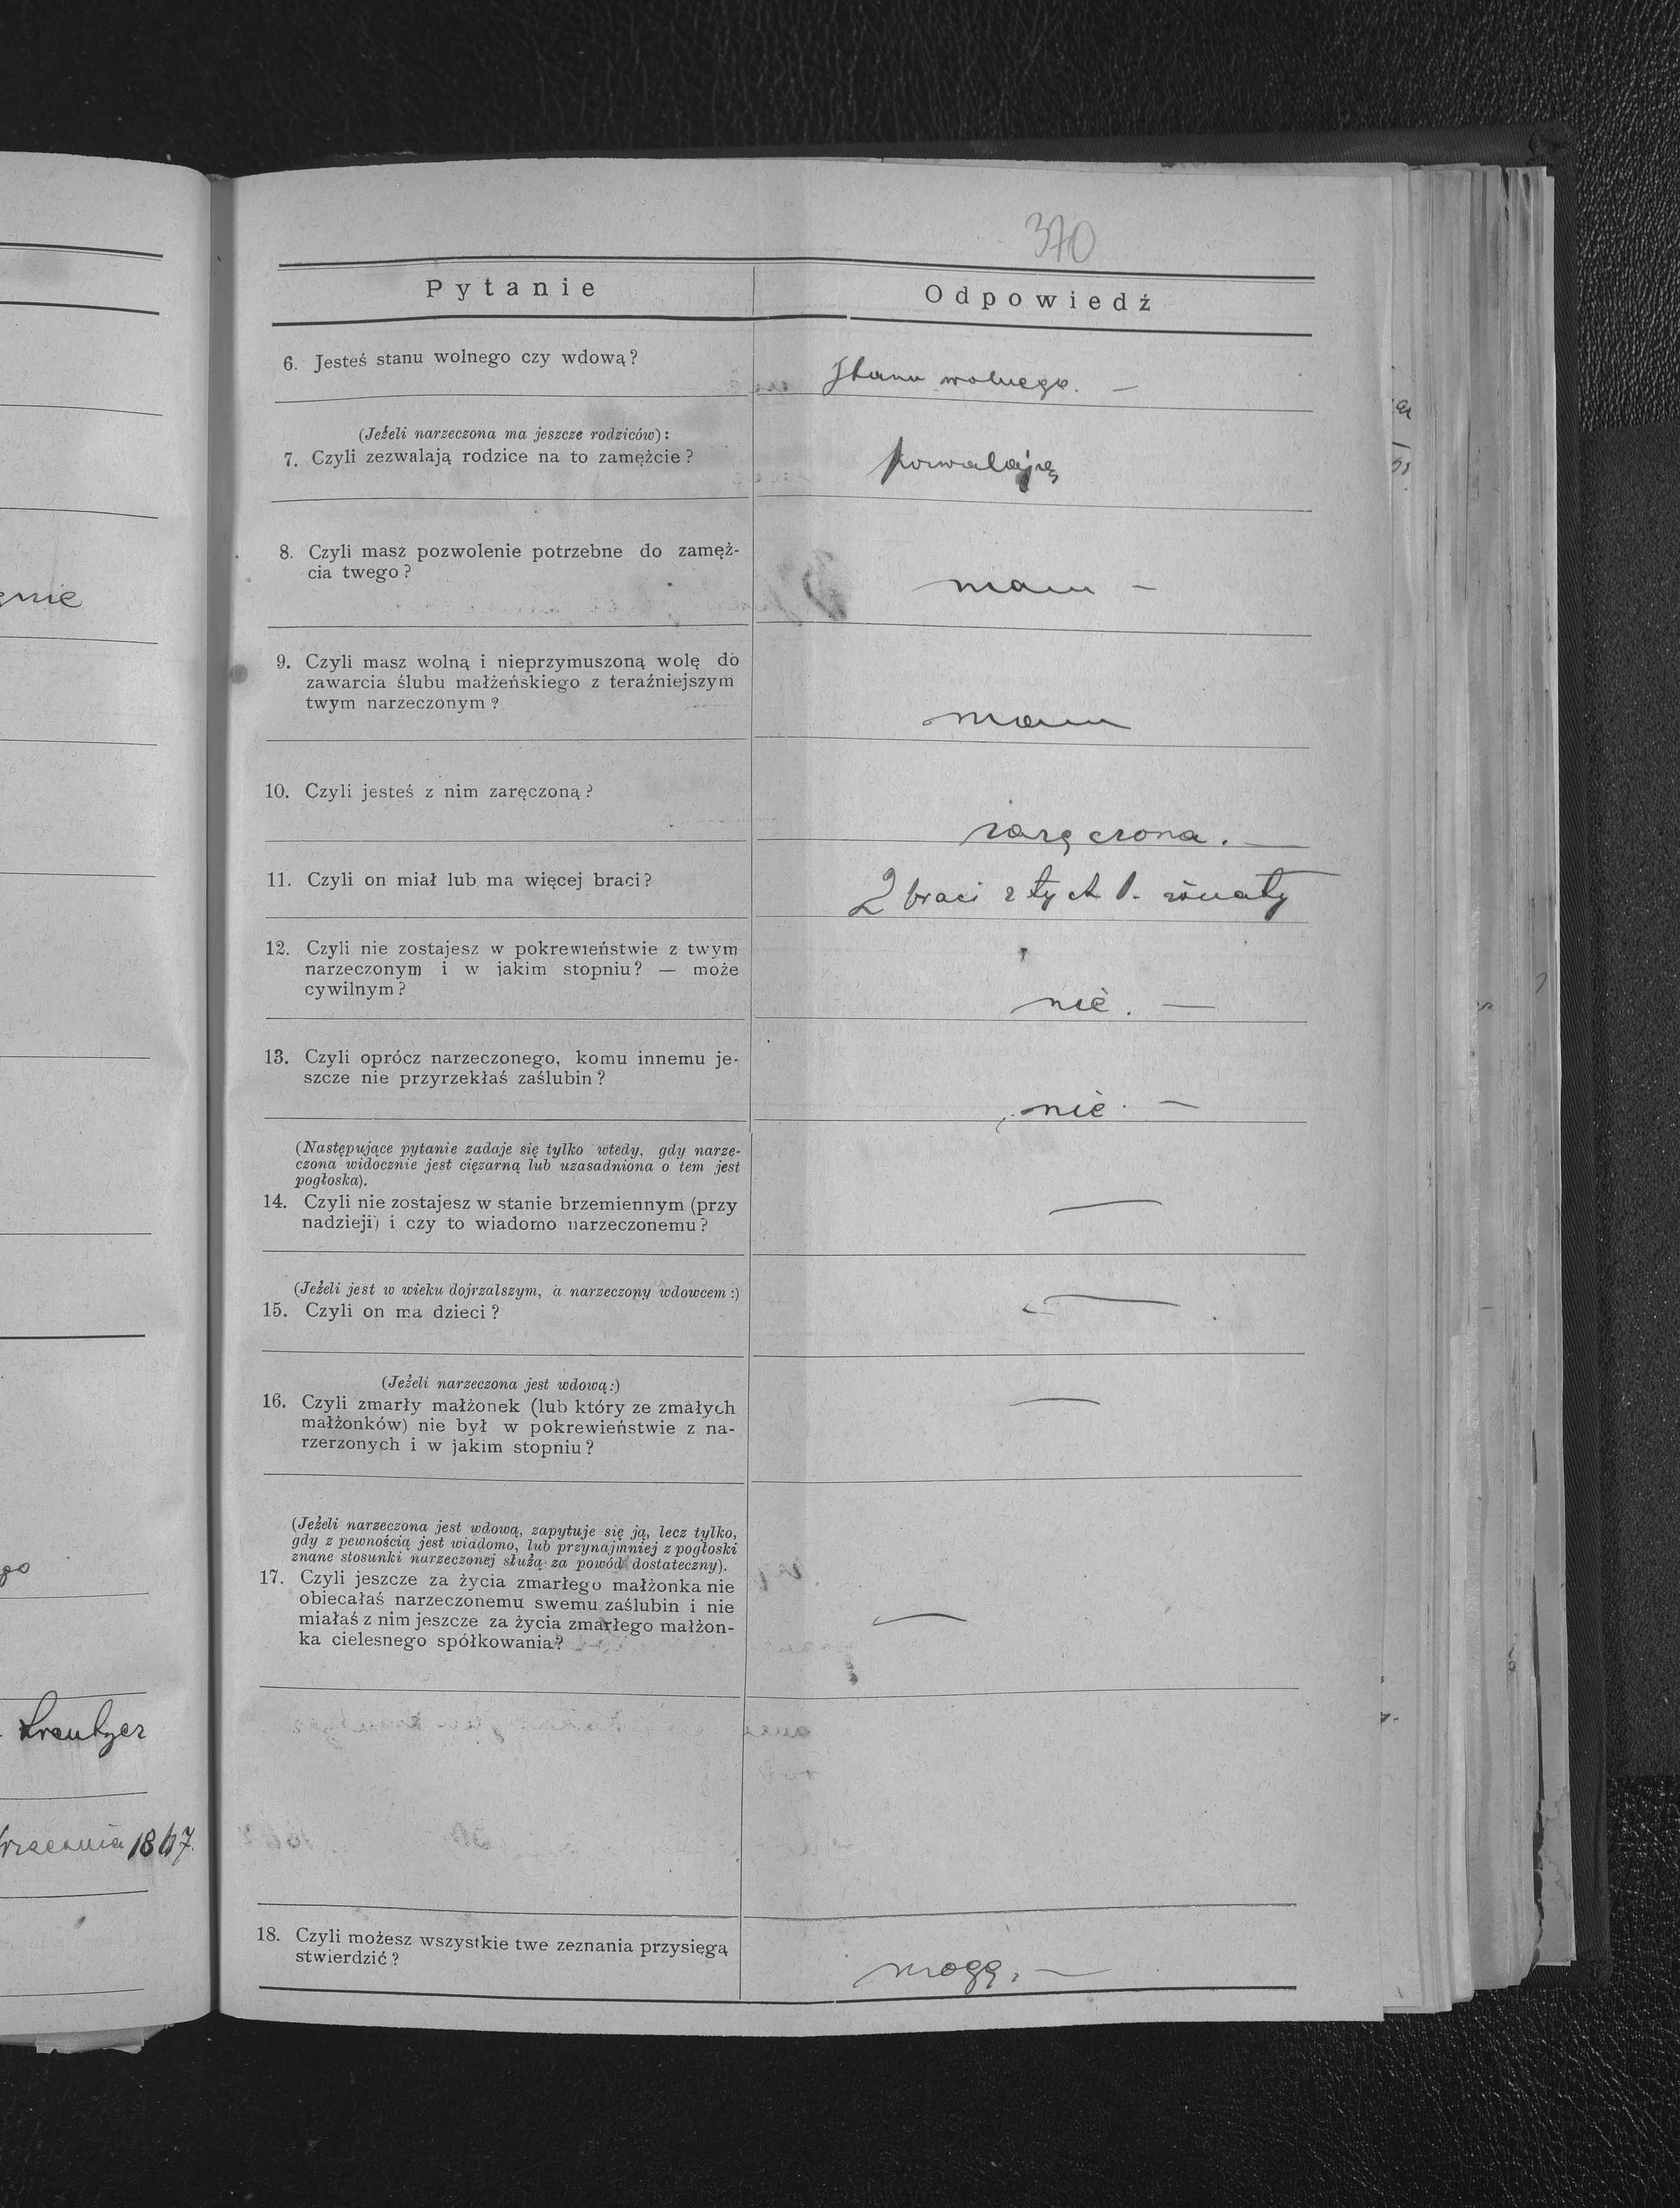 370
Pytanie
Odpowiedź
6. Jesteś stanu wolnego czy wdową?
Stanu wolnego. —
(Jeżeli narzeczona ma jeszcze rodziców):
7. Czyli zezwalają rodzice na to zamężcie?
pozwalają
8. Czyli masz pozwolenie potrzebne do zamęż-
cia twego?
mam —
9. Czyli masz wolną i nieprzymuszoną wolę do
zawarcia ślubu małżeńskiego z teraźniejszym
twym narzeczonym?
mam
10. Czyli jesteś z nim zaręczoną?
zaręczona. —
11. Czyli on miał lub ma więcej braci?
2 braci z tych 1. żonaty
12. Czyli nie zostajesz w pokrewieństwie z twym
narzeczonym i w jakim stopniu? — może
cywilnym?
nie. —
13. Czyli oprócz narzeczonego, komu innemu je-
szcze nie przyrzekłaś zaślubin?
nie. —
(Następujące pytanie zadaje się tylko wtedy, gdy narze-
czona widocznie jest ciężarną lub uzasadniona o tem jest
pogłoska).
14. Czyli nie zostajesz w stanie brzemiennym (przy
nadzieji) i czy to wiadomo narzeczonemu?
—
(Jeżeli jest w wieku dojrzalszym, a narzeczony wdowcem:)
15. Czyli on ma dzieci?
—
(Jeżeli narzeczona jest wdową:)
16. Czyli zmarły małżonek (lub który ze zmałych
małżonków) nie był w pokrewieństwie z na-
rzerzonych i w jakim stopniu?
—
(Jeżeli narzeczona jest wdową, zapytuje się ją, lecz tylko,
gdy z pewnością jest wiadomo, lub przynajmniej z pogłoski
znane stosunki narzeczonej służą za powód dostateczny).
17. Czyli jeszcze za życia zmarłego małżonka nie
obiecałaś narzeczonemu swemu zaślubin i nie
miałaś z nim jeszcze za życia zmarłego małżon-
ka cielesnego spółkowania?
—
18. Czyli możesz wszystkie twe zeznania przysięgą
stwierdzić?
mogę. —